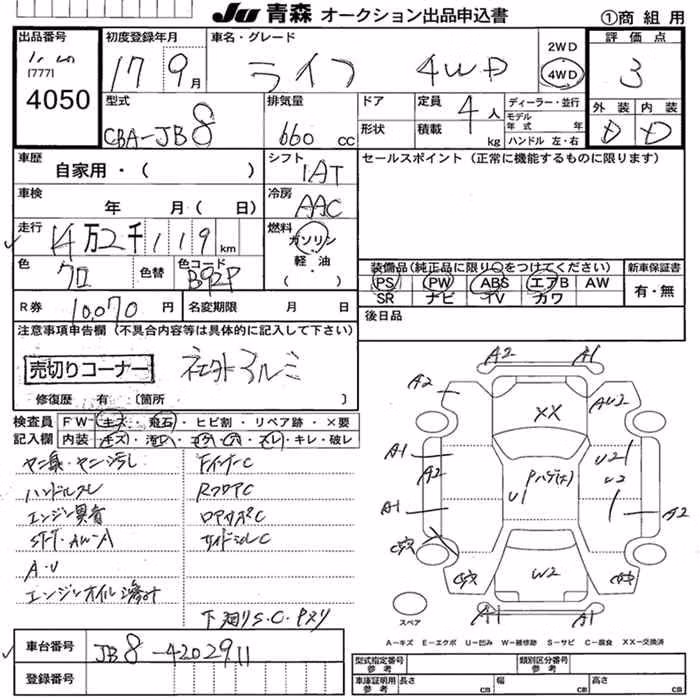 JU 青森 オークション出品申込書 ①商組用
出品番号 初度登録年月 車名・グレード 2WD 評価点
[777] 17 9月 ライフ 4WD 4WD 3
4050
型式 排気量 ドア 定員 4人 ディーラー・並行 外装 内装
CBA-JB8 660cc 形状 積載 kg モデル年式 年 D D
ハンドル 左・右
車歴 自家用・( ) シフト セールスポイント(正常に機能するものに限ります)
IAT
車検 年 月( 日) 冷房
AAC
走行 14万2千119km 燃料
ガソリン
軽油
・( )
色 クロ 色替 色コード B92P
装備品(純正品に限り○をつけてください) 新車保証書
PS PW ABS エアB AW 有・無
SR ナビ TV カワ
R券 10,070円 名変期限 月 日 後日品
注意事項申告欄(不具合内容等は具体的に記入して下さい)
売切りコーナー 社外アルミ
修復歴 有 〔箇所 〕
検査員 FW・キズ・飛石・ヒビ割・リペア跡・×要
記入欄 内装・キズ・汚レ・コゲ・穴・スレ・キレ・破レ
ヤニ臭・ヤニ汚し FインナーC
ハンドルスレ RフロアC
エンジン異音
SFT・AW-A サイドシルC
A・U
エンジンオイル
下廻りS.C.Pヌリ
A2 A1
A2 XX AU2
A1 U2 1
A2 Pハゲ(大) U2
A1 U1 A2
W2
A1 A1
スペア
A=キズ E=エクボ U=凹み W=補修跡 S=サビ C=腐食 XX=交換済
車台番号 JB8-4202911
登録番号
型式指定番号 参考 類別区分番号 参考
車庫証明用 参考 長さ cm 幅 cm 高さ cm